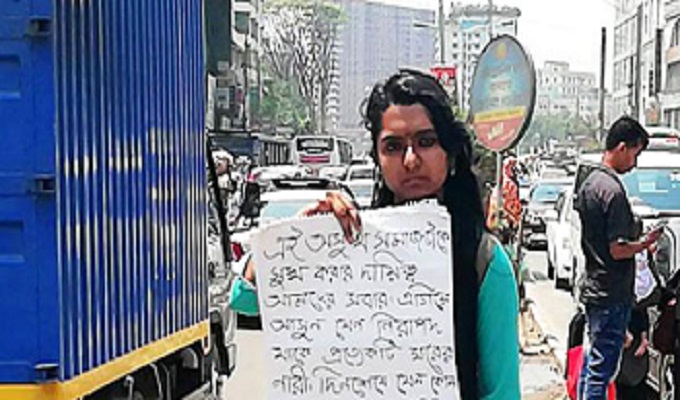 এই অসুস্থ সমাজটাকে
সুস্থ করার দায়িত্ব
আমাদের সবার এগিয়ে
আসুন যেন নিরাপদ
থাকে প্রত্যেকটি ঘরের
নারী, দিনশেষে যেন কোন